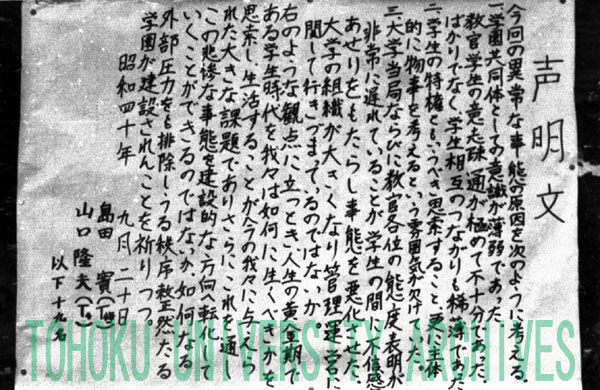 声明文
今回の異常な事態の原因を次のように考える.
一.学園共同体としての意識が薄弱であった.
教官学生の意志疎通が極めて不十分あった
ばかりでなく学生相互のつながりも稀薄であった
二.学生の特権ともいうべき思索すること、更に主体
的に物事を考えるという雰囲気が欠けていた.
三.大学当局ならびに教官各位の態度表明が
非常に遅れていることが学生の間に不信感
あせりをもたらし事態を悪化させた.
大学の組織が大きくなり管理運営に
関して行きづまっているのではないか
右のような観点に立つとき人生の黄草期で
ある学生時代を我々は如何に生くべきかを
思索し生活することが今の我々に与えら
れた大きな課題でありさらにこれを通し
この悲惨な事態を建設的な方向へ転化して
いくことができるのではないか.如何なる
外部圧力をも排除しうる秩序整然たる
学園が建設されんことを祈りつつ
昭和四十年 九月二十日
島田 實
山口隆夫
以下十九名
TOHOKU UNIVERSITY ARCHIVES